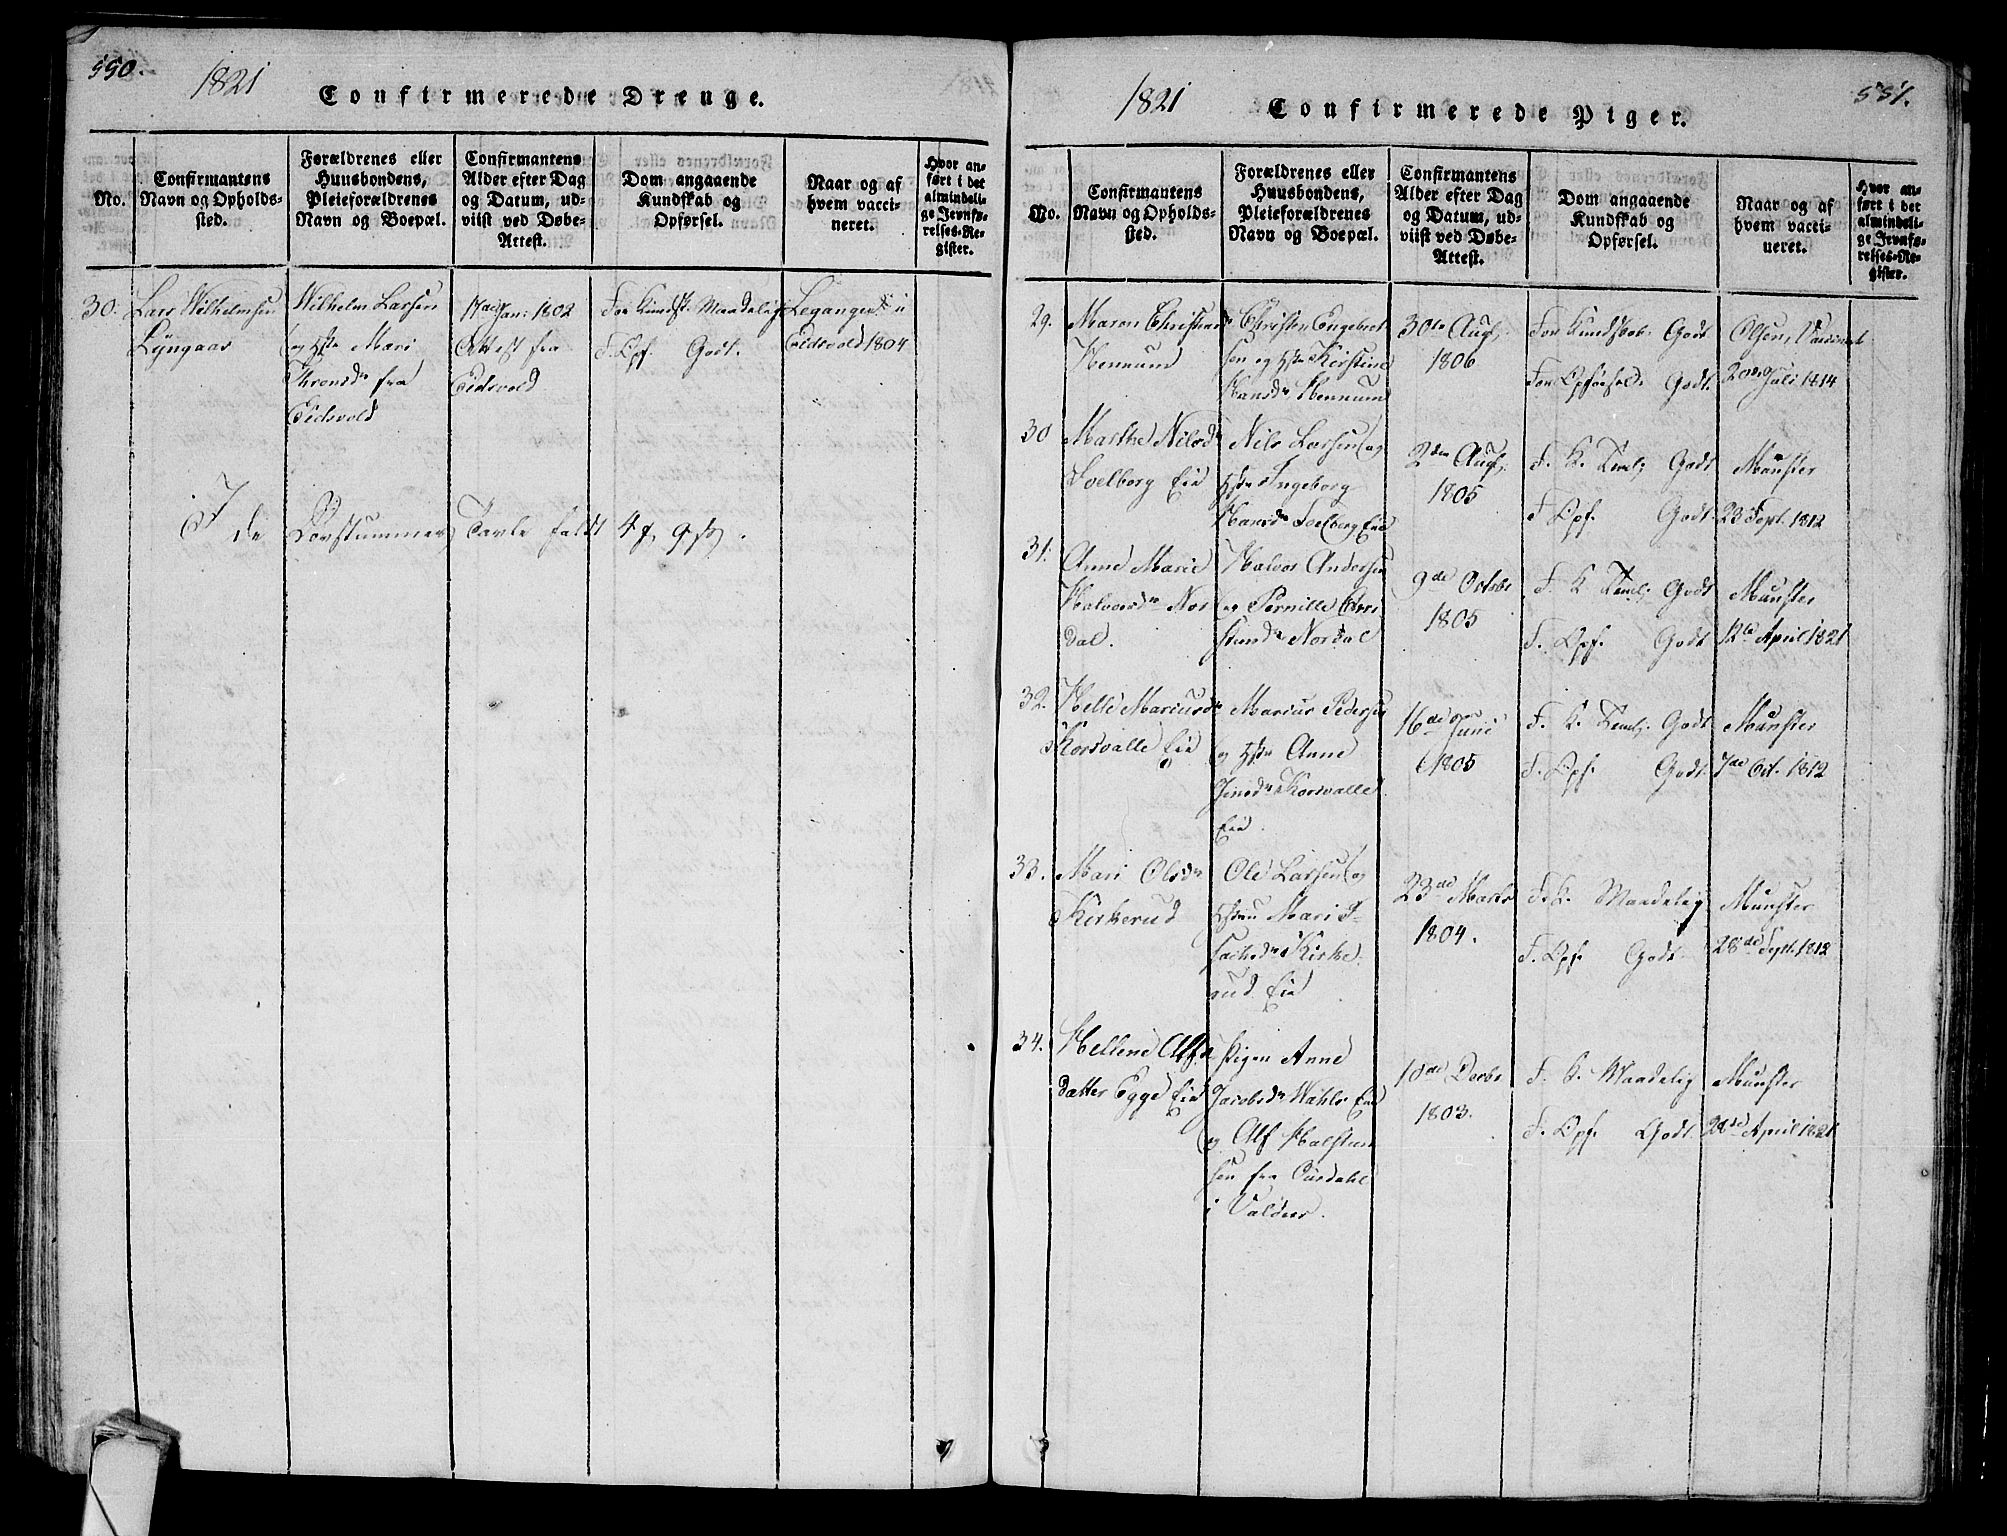 550.
1821
Confirmerede Drenge.
No.
Confirmantens
Navn og Opholds-
sted.
Forældrenes eller
Huusbondens,
Pleieforældrenes
Navn og Boepæl.
Confirmantens
Alder efter Dag
og Datum, ud-
viist ved Døbe-
Attest.
Dom angaaende
Kundskab og
Opførsel.
Naar og af
hvem vacci-
neret.
Hvor an-
ført i det
almindeli-
ge Jevnfø-
relses-Re-
gister.
30.
Lars Wilhelmsen
Lyngaas
Wilhelm Larsen
og Mari
Thronsdr fra
Eidsvold
Jan: 1802
Attest fra
Eidsvold
For Kundsk. Maadelig
F. Opf. Godt.
i
Eidsvold 1804
I de Døvstummes Tavle faldt 4
1821
Confirmerede Piger.
551.
No.
Confirmantens
Navn og Opholds-
sted.
Forældrenes eller
Huusbondens,
Pleieforældrenes
Navn og Boepæl.
Confirmantens
Alder efter Dag
og Datum, ud-
viist ved Døbe-
Attest.
Dom angaaende
Kundskab og
Opførsel.
Naar og af
hvem vacci-
neret.
Hvor an-
ført i det
almindeli-
ge Jevnfø-
relses-Re-
gister.
29.
Maren
Hennum
Christen Engebret
sen og Kirstine
Hansdr Hennum
30te Aug.
1806
For Kundskab. Godt
For Opførsel. Godt.
Olsen,
Juli 1814
30
Marthe Nilsdr
Soelberg Eie
Nils Larsen og
Ingeborg
Hansdr Soelberg Eie
2den Aug.
1805
F. K. Temlig Godt
F. Opf. Godt.
Münster
23 Sept. 1812
31.
Anne Marie
Halvorsdr Nor
dal.
Halvor Andersen
og Pernille Chri
stensdr Nordal
9de Octobr
1805
F. K. Temlig Godt
F. Opf. Godt
Münster
12te April 1821
32.
Helle Mariusdr
Korsvalle Eie
Marius Pedersen
og Anne
Jensdr Korsvalle
Eie.
16de Juni
1805
F. K. Temlig. Godt
F. Opf. Godt.
Münster
7de Oct. 1812
33.
Mari Olsdr
Kirkerud
Ole Larsen og
Mari
Kirke
rud Eie
23de Marts
1804.
F. K. Maadelig
F. Opf. Godt.
Münster
28de Sept. 1812
34.
Hellene Alfs
datter Egge Eie
Pigen Anne
Jacobsdr Eie
og Alf Halsten
sen fra Ourdahl
i Valders.
18de Decbr
1803.
F. K. Maadelig
F. Opf. Godt.
Münster
April 1821